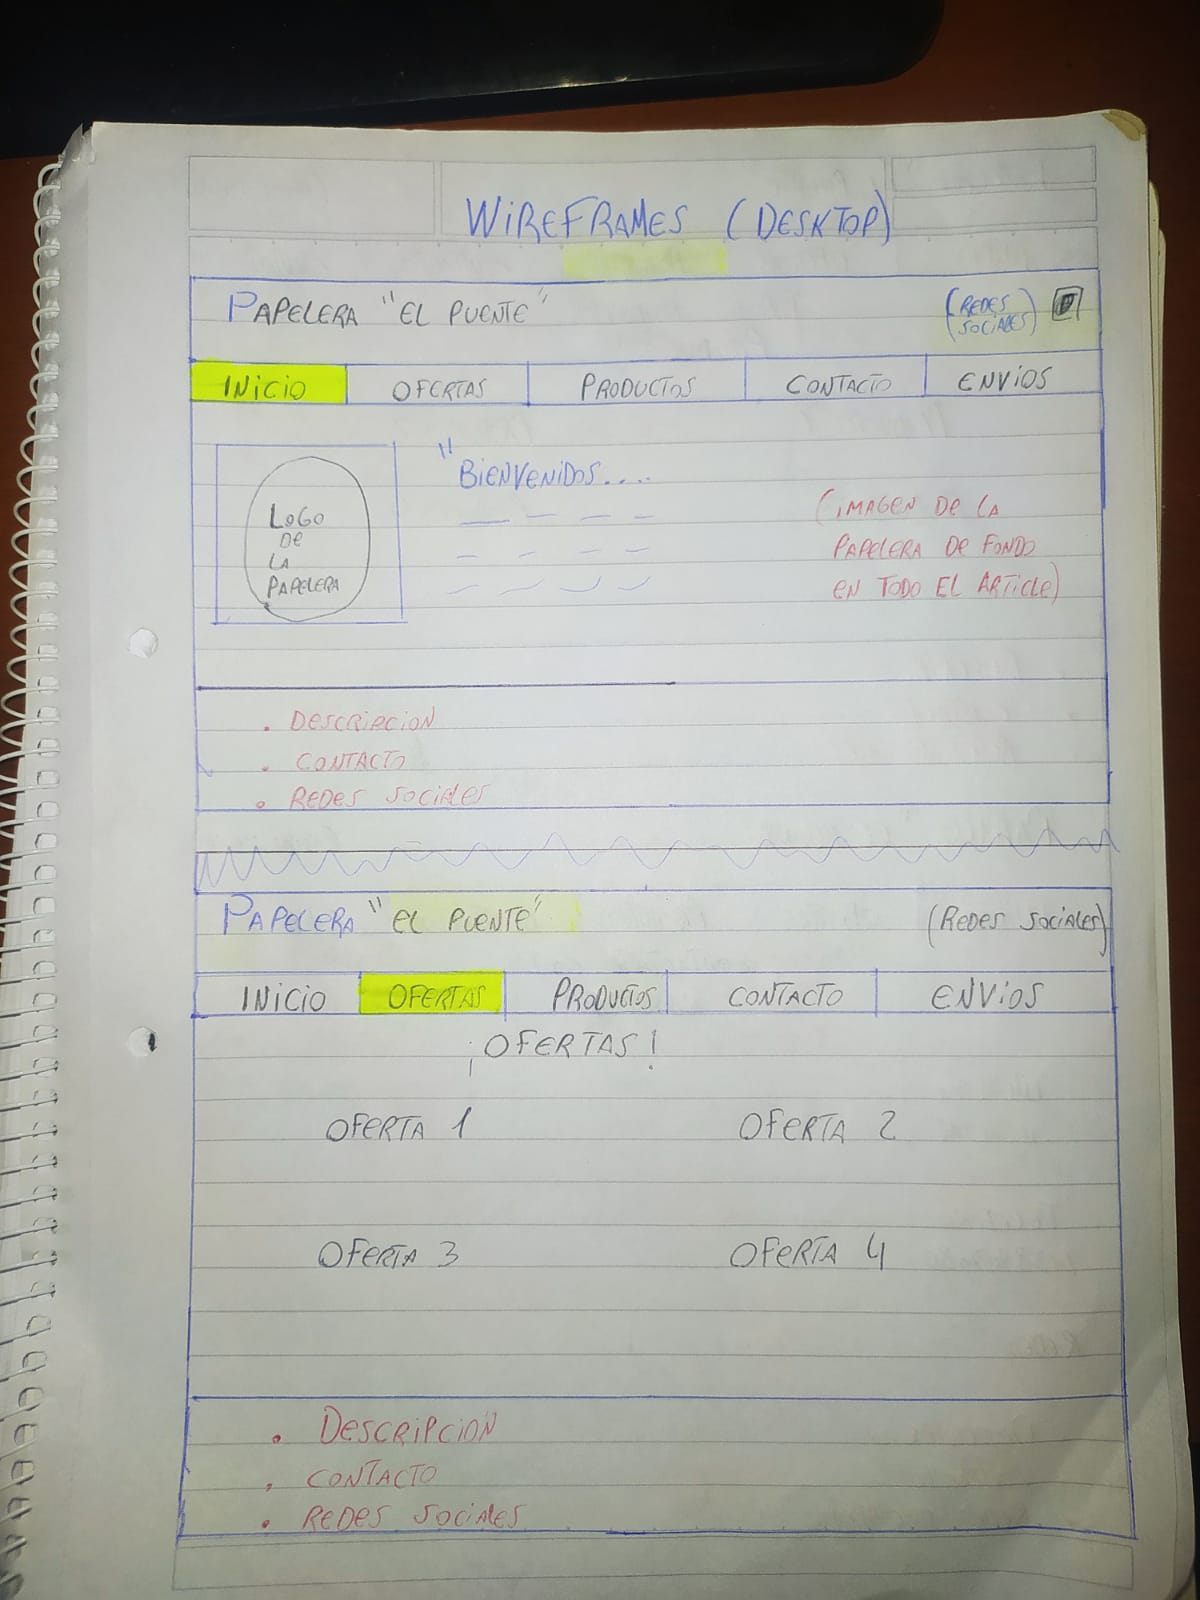 WIREFRAMES (DESKTOP)
PAPELERA "EL PUENTE"
(REDES
SOCIALES)
INICIO OFERTAS PRODUCTOS CONTACTO ENVIOS
LOGO
DE
LA
PAPELERA
"BIENVENIDOS....
(IMAGEN DE LA
PAPELERA DE FONDO
EN TODO EL ARTICLE)
. DESCRIPCION
. CONTACTO
. REDES SOCIALES
PAPELERA "EL PUENTE" (REDES SOCIALES)
INICIO OFERTAS PRODUCTOS CONTACTO ENVIOS
¡OFERTAS!
OFERTA 1 OFERTA 2
OFERTA 3 OFERTA 4
. DESCRIPCION
. CONTACTO
. REDES SOCIALES